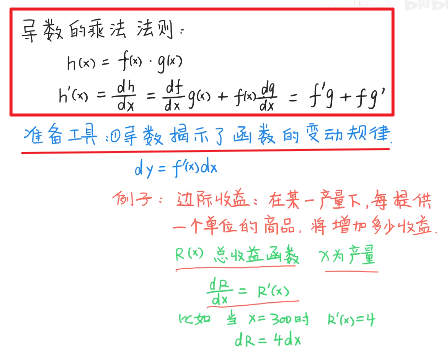 导数的乘法法则:
h(x) = f(x)·g(x)
h'(x) = dh/dx = df/dx g(x) + f(x) dg/dx = f'g + fg'
准备工具:①导数揭示了函数的变动规律.
dy = f'(x)dx
例子: 边际收益: 在某一产量下,每提供
一个单位的商品,将增加多少收益.
R(x) 总收益函数 x为产量
dR/dx = R'(x)
比如 当 x=300时 R'(x)=4
dR = 4dx